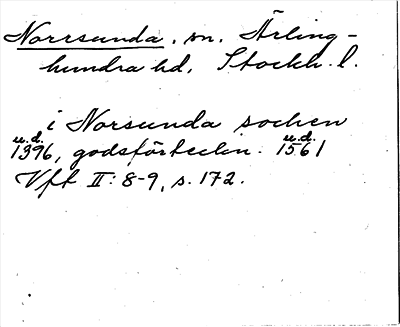 Norrsunda, sn, Ärling-
hundra hd, Stockh. l.
i Norsunda sochen
u.d. u.d.
1396, godsförteckn. 1561
Vft II: 8-9, s. 172.